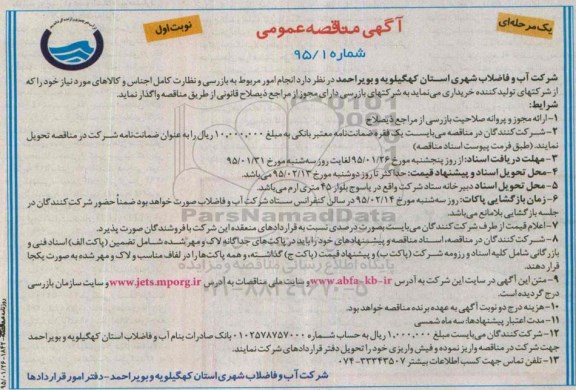 یک مرحله‌ای
آگهی مناقصه عمومی
نوبت اول
شماره ۹۵/۱
شرکت آب و فاضلاب شهری استان کهگیلویه و بویراحمد در نظر دارد انجام امور مربوط به بازرسی و نظارت کامل اجناس و کالاهای مورد نیاز خود را که
از شرکتهای تولید کننده خریداری می‌نماید به شرکتهای بازرسی دارای مجوز از مراجع ذیصلاح قانونی از طریق مناقصه واگذار نماید.
شرایط:
۱-ارائه مجوز و پروانه صلاحیت بازرسی از مراجع ذیصلاح
۲-شرکت کنندگان در مناقصه می‌بایست یک فقره ضمانت‌نامه معتبر بانکی به مبلغ ۱۰,۰۰۰,۰۰۰ ریال را به عنوان ضمانت‌نامه شرکت در مناقصه تحویل
نمایند. (طبق فرمت پیوست اسناد مناقصه)
۳-مهلت دریافت اسناد: از روز پنجشنبه مورخ ۹۵/۰۱/۲۶ لغایت روز سه‌شنبه مورخ ۹۵/۰۱/۳۱
۴-محل تحویل اسناد و پیشنهاد قیمت: حداکثر تا روز دوشنبه مورخ ۹۵/۰۲/۱۳ می‌باشد.
۵-محل تحویل اسناد دبیرخانه ستاد شرکت واقع در یاسوج بلوار ۴۵ متری ارم می‌باشد.
۶-زمان بازگشایی پاکات: روز سه‌شنبه مورخ ۹۵/۰۲/۱۴ در سالن کنفرانس ستاد شرکت آب و فاضلاب صورت خواهد بود ضمناً حضور شرکت کنندگان در
جلسه بازگشایی بلامانع می‌باشد.
۷-اعلام قیمت از طرف شرکت کنندگان می‌بایست بصورت درصدی نسبت به قراردادهای منعقده این شرکت با فروشندگان صورت پذیرد.
۸-شرکت کنندگان در مناقصه، اسناد مناقصه و پیشنهادهای خود را باید در پاکت‌های جداگانه لاک و مهر شده شامل تضمین (پاکت الف) اسناد فنی و
بازرگانی شامل کلیه اسناد و رزومه شرکت (پاکت ب) و پیشنهاد قیمت (پاکت ج) گذاشته، و همه پاکت‌ها را در لفاف مناسب و لاک و مهر شده به صورت یکجا
قرار دهند.
۹-متن این آگهی در سایت این شرکت به آدرس www.abfa-kb-ir و سایت ملی مناقصات به آدرس www.jets.mporg.ir و سایت سازمان بازرسی
درج گردیده است.
۱۰-هزینه درج دو نوبت آگهی به عهده برنده مناقصه خواهد بود.
۱۱-مدت اعتبار پیشنهادها: سه ماه شمسی
۱۲-شرکت کنندگان می‌بایست مبلغ ۱,۰۰۰,۰۰۰ ریال به حساب شماره ۰۱۰۲۵۷۸۷۵۷۰۰۰ بانک صادرات بنام آب و فاضلاب استان کهگیلویه و بویراحمد
جهت شرکت در مناقصه واریز نموده و فیش واریزی خود را تحویل دفتر قراردادهای شرکت نمایند.
۱۳-تلفن تماس جهت کسب اطلاعات بیشتر ۳۳۳۴۳۵۰۷-۰۷۴
شرکت آب و فاضلاب شهری استان کهگیلویه و بویراحمد-دفتر امور قراردادها
ParsNamadData
پایگاه اطلاع رسانی مناقصه و مزایده
۰۲۱-۸۸۳۴۹۶۷۰-۵